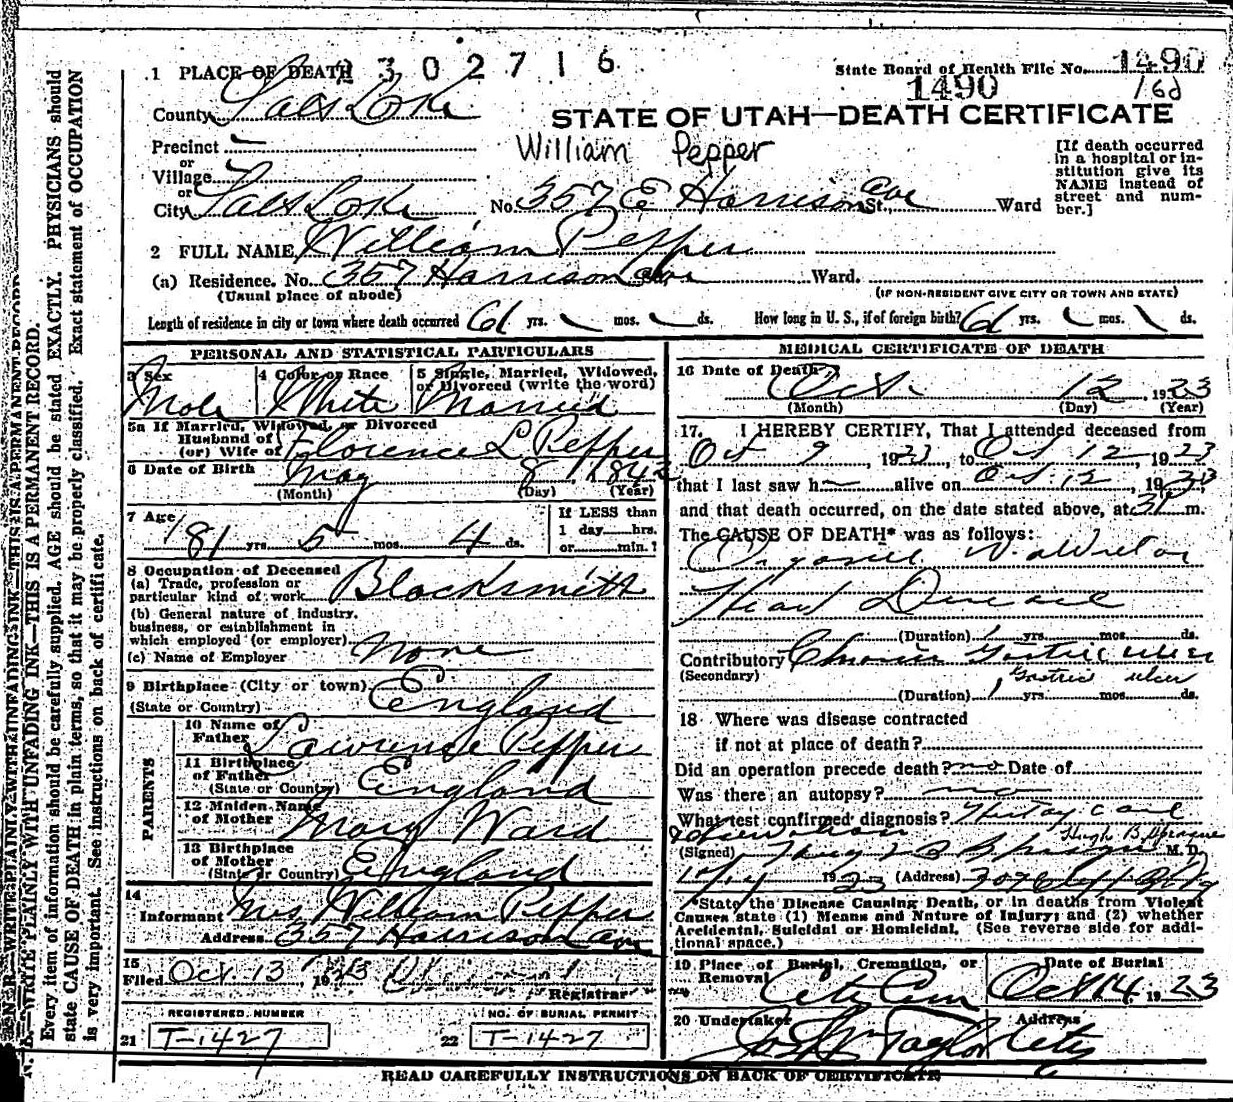 N. B.—WRITE PLAINLY WITH UNFADING INK—THIS IS A PERMANENT RECORD.
Every item of information should be carefully supplied. AGE should be stated EXACTLY. PHYSICIANS should
state CAUSE OF DEATH in plain terms, so that it may be properly classified. Exact statement of OCCUPATION
is very important. See instructions on back of certificate.
1 PLACE OF DEATH 2302716
State Board of Health File No. 1490
1490
County Salt Lake
STATE OF UTAH—DEATH CERTIFICATE
Precinct
William Pepper
[If death occurred in a hospital or institution give its NAME instead of street and number.]
or
Village
or
City Salt Lake No. 357 E Harrison Ave St., Ward
2 FULL NAME William Pepper
(a) Residence. No. 357 Harrison Ave Ward.
(Usual place of abode) (IF NON-RESIDENT GIVE CITY OR TOWN AND STATE)
Length of residence in city or town where death occurred 61 yrs. mos. ds. How long in U. S., if of foreign birth? 61 yrs. mos. ds.
PERSONAL AND STATISTICAL PARTICULARS
3 Sex
Male
4 Color or Race
White
5 Single, Married, Widowed, or Divorced (write the word)
Married
5a If Married, Widowed, or Divorced
Husband of
(or) Wife of Florence L Pepper
6 Date of Birth May 8, 1842
(Month) (Day) (Year)
7 Age 81 yrs. 5 mos. 4 ds.
If LESS than
1 day hrs.
or min.?
8 Occupation of Deceased
(a) Trade, profession or
particular kind of work Blacksmith
(b) General nature of industry,
business, or establishment in
which employed (or employer)
(c) Name of Employer None
9 Birthplace (City or town)
(State or Country) England
PARENTS
10 Name of
Father Lawrence Pepper
11 Birthplace
of Father
(State or Country) England
12 Maiden Name
of Mother Mary Ward
13 Birthplace
of Mother
(State or Country) England
14
Informant Mrs William Pepper
Address 357 Harrison Ave
15
Filed Oct. 13, 1923
Registrar
REGISTERED NUMBER
21 T-1427
NO. OF BURIAL PERMIT
22 T-1427
MEDICAL CERTIFICATE OF DEATH
16 Date of Death Oct. 12, 1923
(Month) (Day) (Year)
17. I HEREBY CERTIFY, That I attended deceased from
Oct 9, 1923, to Oct 12, 1923
that I last saw h alive on Oct 12, 1923,
and that death occurred, on the date stated above, at m.
The CAUSE OF DEATH* was as follows:
Heart Disease
(Duration) 1 yrs. mos. ds.
Contributory Chronic Gastric ulcer
(Secondary) Gastric ulcer
(Duration) 1 yrs. mos. ds.
18 Where was disease contracted
if not at place of death?
Did an operation precede death? no Date of
Was there an autopsy? no
What test confirmed diagnosis?
Hugh B Sprague
(Signed) Hugh B Sprague M. D.
10/14 1923 (Address)
*State the Disease Causing Death, or in deaths from Violent
Causes state (1) Means and Nature of Injury; and (2) whether
Accidental, Suicidal or Homicidal. (See reverse side for additional space.)
19 Place of Burial, Cremation, or
Removal City Cem
Date of Burial
Oct 14, 1923
20 Undertaker Address
Jos Wm Taylor City
READ CAREFULLY INSTRUCTIONS ON BACK OF CERTIFICATE